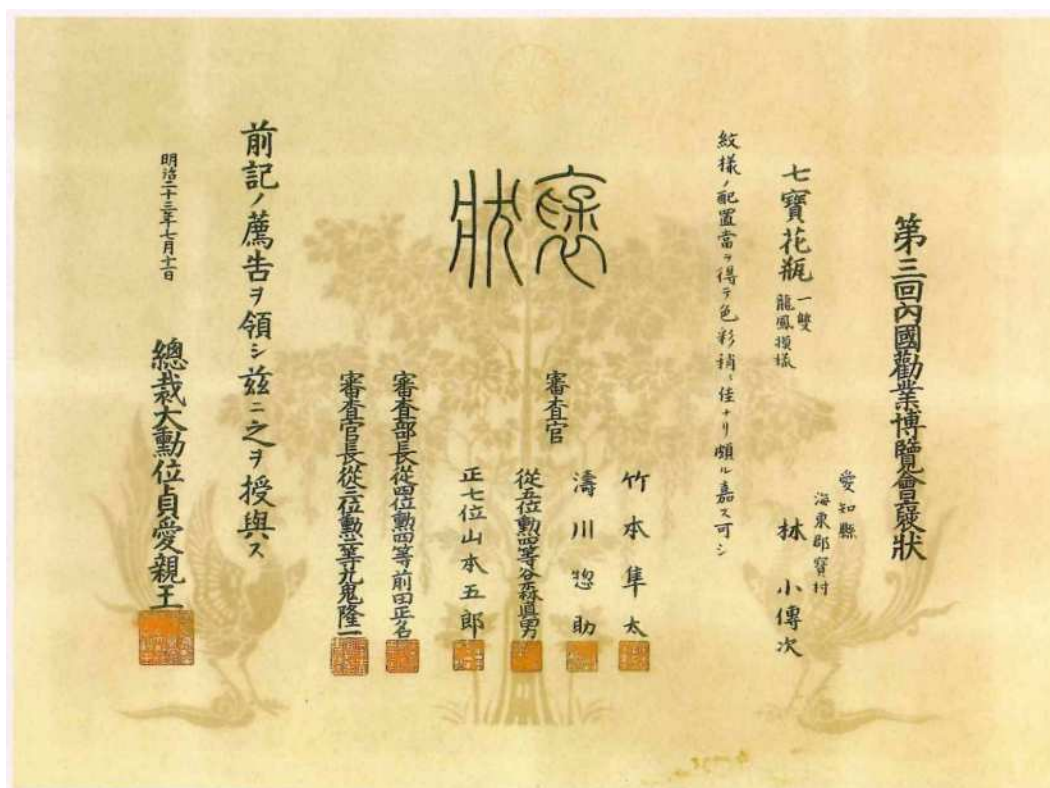 第三回內國勸業博覽會襃狀
愛知縣
海東郡寶村
林小傳次
七寶花瓶
一雙
龍鳳摸樣
紋樣ノ配置當ヲ得テ色彩稍〻佳ナリ頗ル嘉ス可シ
襃狀
審査官
竹本隼太
濤川惣助
從五位勲四等谷森眞男
正七位山本五郎
審査部長從四位勲四等前田正名
審査官長從三位勲二等九鬼隆一
前記ノ薦告ヲ領シ茲ニ之ヲ授與ス
明治二十三年七月十一日
總裁大勳位貞愛親王